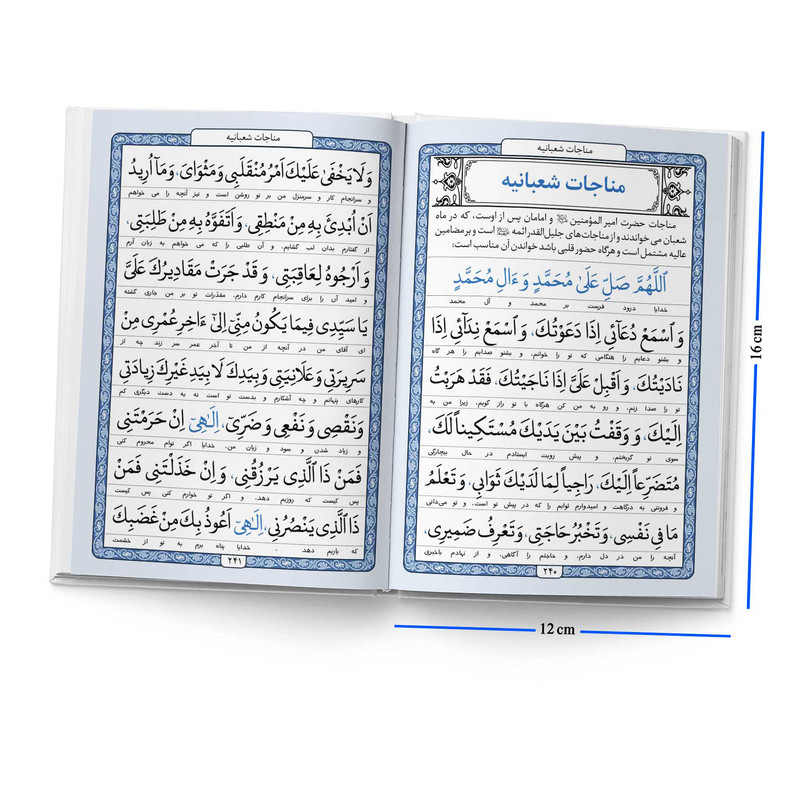 مناجات شعبانیه
مناجات شعبانیه
مناجات حضرت امیر المؤمنین و امامان پس از اوست، که در ماه
شعبان می خواندند و از مناجات‌های جلیل‌القدر ائمه است و بر مضامین
عالیه مشتمل است و هرگاه حضور قلبی باشد خواندن آن مناسب است:
اَللَّهُمَّ صَلِّ عَلَىٰ مُحَمَّدٍ وَ ءَالِ مُحَمَّدٍ
خدایا درود فرست بر محمد و آل محمد
وَ ٱسْمَعْ دُعَآئِی اِذَا دَعَوْتُكَ، وَ ٱسْمَعْ نِدَآئِی اِذَا
و بشنو دعایم را هنگامی که تو را خوانم، و بشنو صدایم را هر گاه
نَادَیْتُكَ، وَ اَقْبِلْ عَلَیَّ اِذَا نَاجَیْتُكَ، فَقَدْ هَرَبْتُ
تو را صدا زنم. و رو به من کن هرگاه با تو راز گویم، زیرا من به
اِلَیْكَ، وَ وَقَفْتُ بَیْنَ یَدَیْكَ مُسْتَكِیناً لَكَ،
سوی تو گریختم. و پیش رویت ایستادم در حال بیچارگی
مُتَضَرِّعاً اِلَیْكَ، رَاجِیاً لِمَا لَدَیْكَ ثَوَابِی، وَ تَعْلَمُ
و فروتنی به درگاهت و امیدوارم ثوابم را که در پیش تو است. و تو می‌دانی
مَا فِی نَفْسِی، وَ تَخْبُرُ حَاجَتِی، وَ تَعْرِفُ ضَمِیرِی،
آنچه را من در دل دارم. و حاجتم را آگاهی. و از نهادم باخبری
۲۴۰
مناجات شعبانیه
وَ لَا یَخْفَىٰ عَلَیْكَ اَمْرُ مُنْقَلَبِی وَ مَثْوَایَ، وَ مَآ اُرِیدُ
و سرانجام کار و سرمنزل من بر تو روشن است و نیز آنچه را می خواهم
اَنْ اُبْدِئَ بِهِ مِنْ مَنْطِقِی، وَ اَتَفَوَّهُ بِهِ مِنْ طَلِبَتِی،
از گفتارم بدان لب گشایم. و آن طلبی را که می خواهم به زبان آرم
وَ اَرْجُوهُ لِعَاقِبَتِی، وَ قَدْ جَرَتْ مَقَادِیرُكَ عَلَیَّ
و امید آن را برای سرانجام کارم دارم. مقدرات تو بر من جاری گشته
یَا سَیِّدِی فِیمَا یَكُونُ مِنِّی اِلَىٰٓ ءَاخِرِ عُمْرِی مِنْ
ای آقای من در آنچه از من تا آخر عمر سر زند چه از
سَرِیرَتِی وَ عَلَانِیَتِی وَ بِیَدِكَ لَا بِیَدِ غَیْرِكَ زِیَادَتِی
کارهای پنهانم و چه آشکارم و بدست تو است نه به دست دیگری کم
وَ نَقْصِی وَ نَفْعِی وَ ضَرِّیٓ، اِلَـٰهِیٓ اِنْ حَرَمْتَنِی
و زیاد شدن و سود و زیان من. خدایا اگر توام محروم کنی
فَمَنْ ذَا ٱلَّذِی یَرْزُقُنِی، وَ اِنْ خَذَلْتَنِی فَمَنْ
پس کیست که روزیم دهد. و اگر تو خوارم کنی پس کیست
ذَا ٱلَّذِی یَنْصُرُنِی، اِلَـٰهِیٓ اَعُوذُ بِكَ مِنْ غَضَبِكَ
که یاریم دهد. خدایا پناه برم به تو از خشمت
۲۴۱
16 cm
12 cm